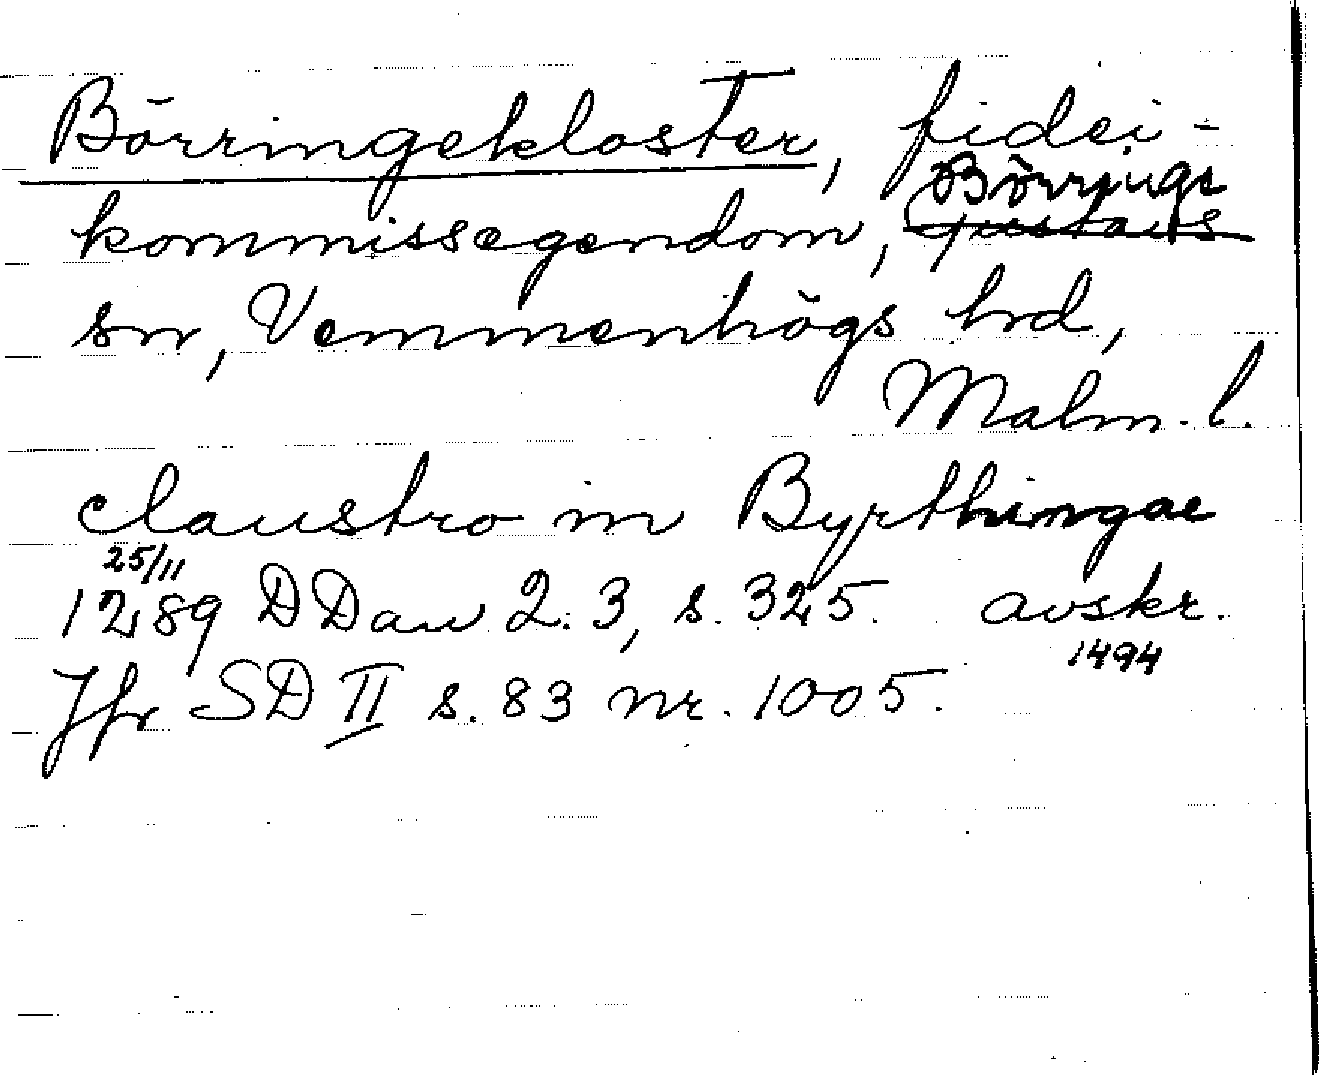 Börringekloster, fidei-
kommissegendom, Börringe
Gustavs
sn, Vemmenhögs hrd,
Malm. l.
claustro in Byrthingae
25/11
1289 DDan 2. 3, s. 325. avskr.
1494
Jfr SD II s. 83 nr. 1005.